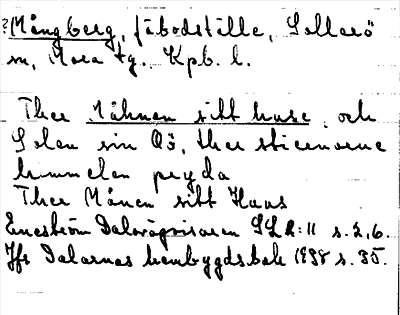 ?Mångberg, fäbodställe, Sollerö
sn, Mora tg. Kpb. l.
Ther Måhnen sitt huse, och
Solen sin Öö, ther stiernorne
himmelen pryda
Ther Månen sitt Huus
Eneström Dalvåpvisaren SLh:11 s. 2, 6.
Jfr Dalarnas hembygdsbok 1938 s. 35.